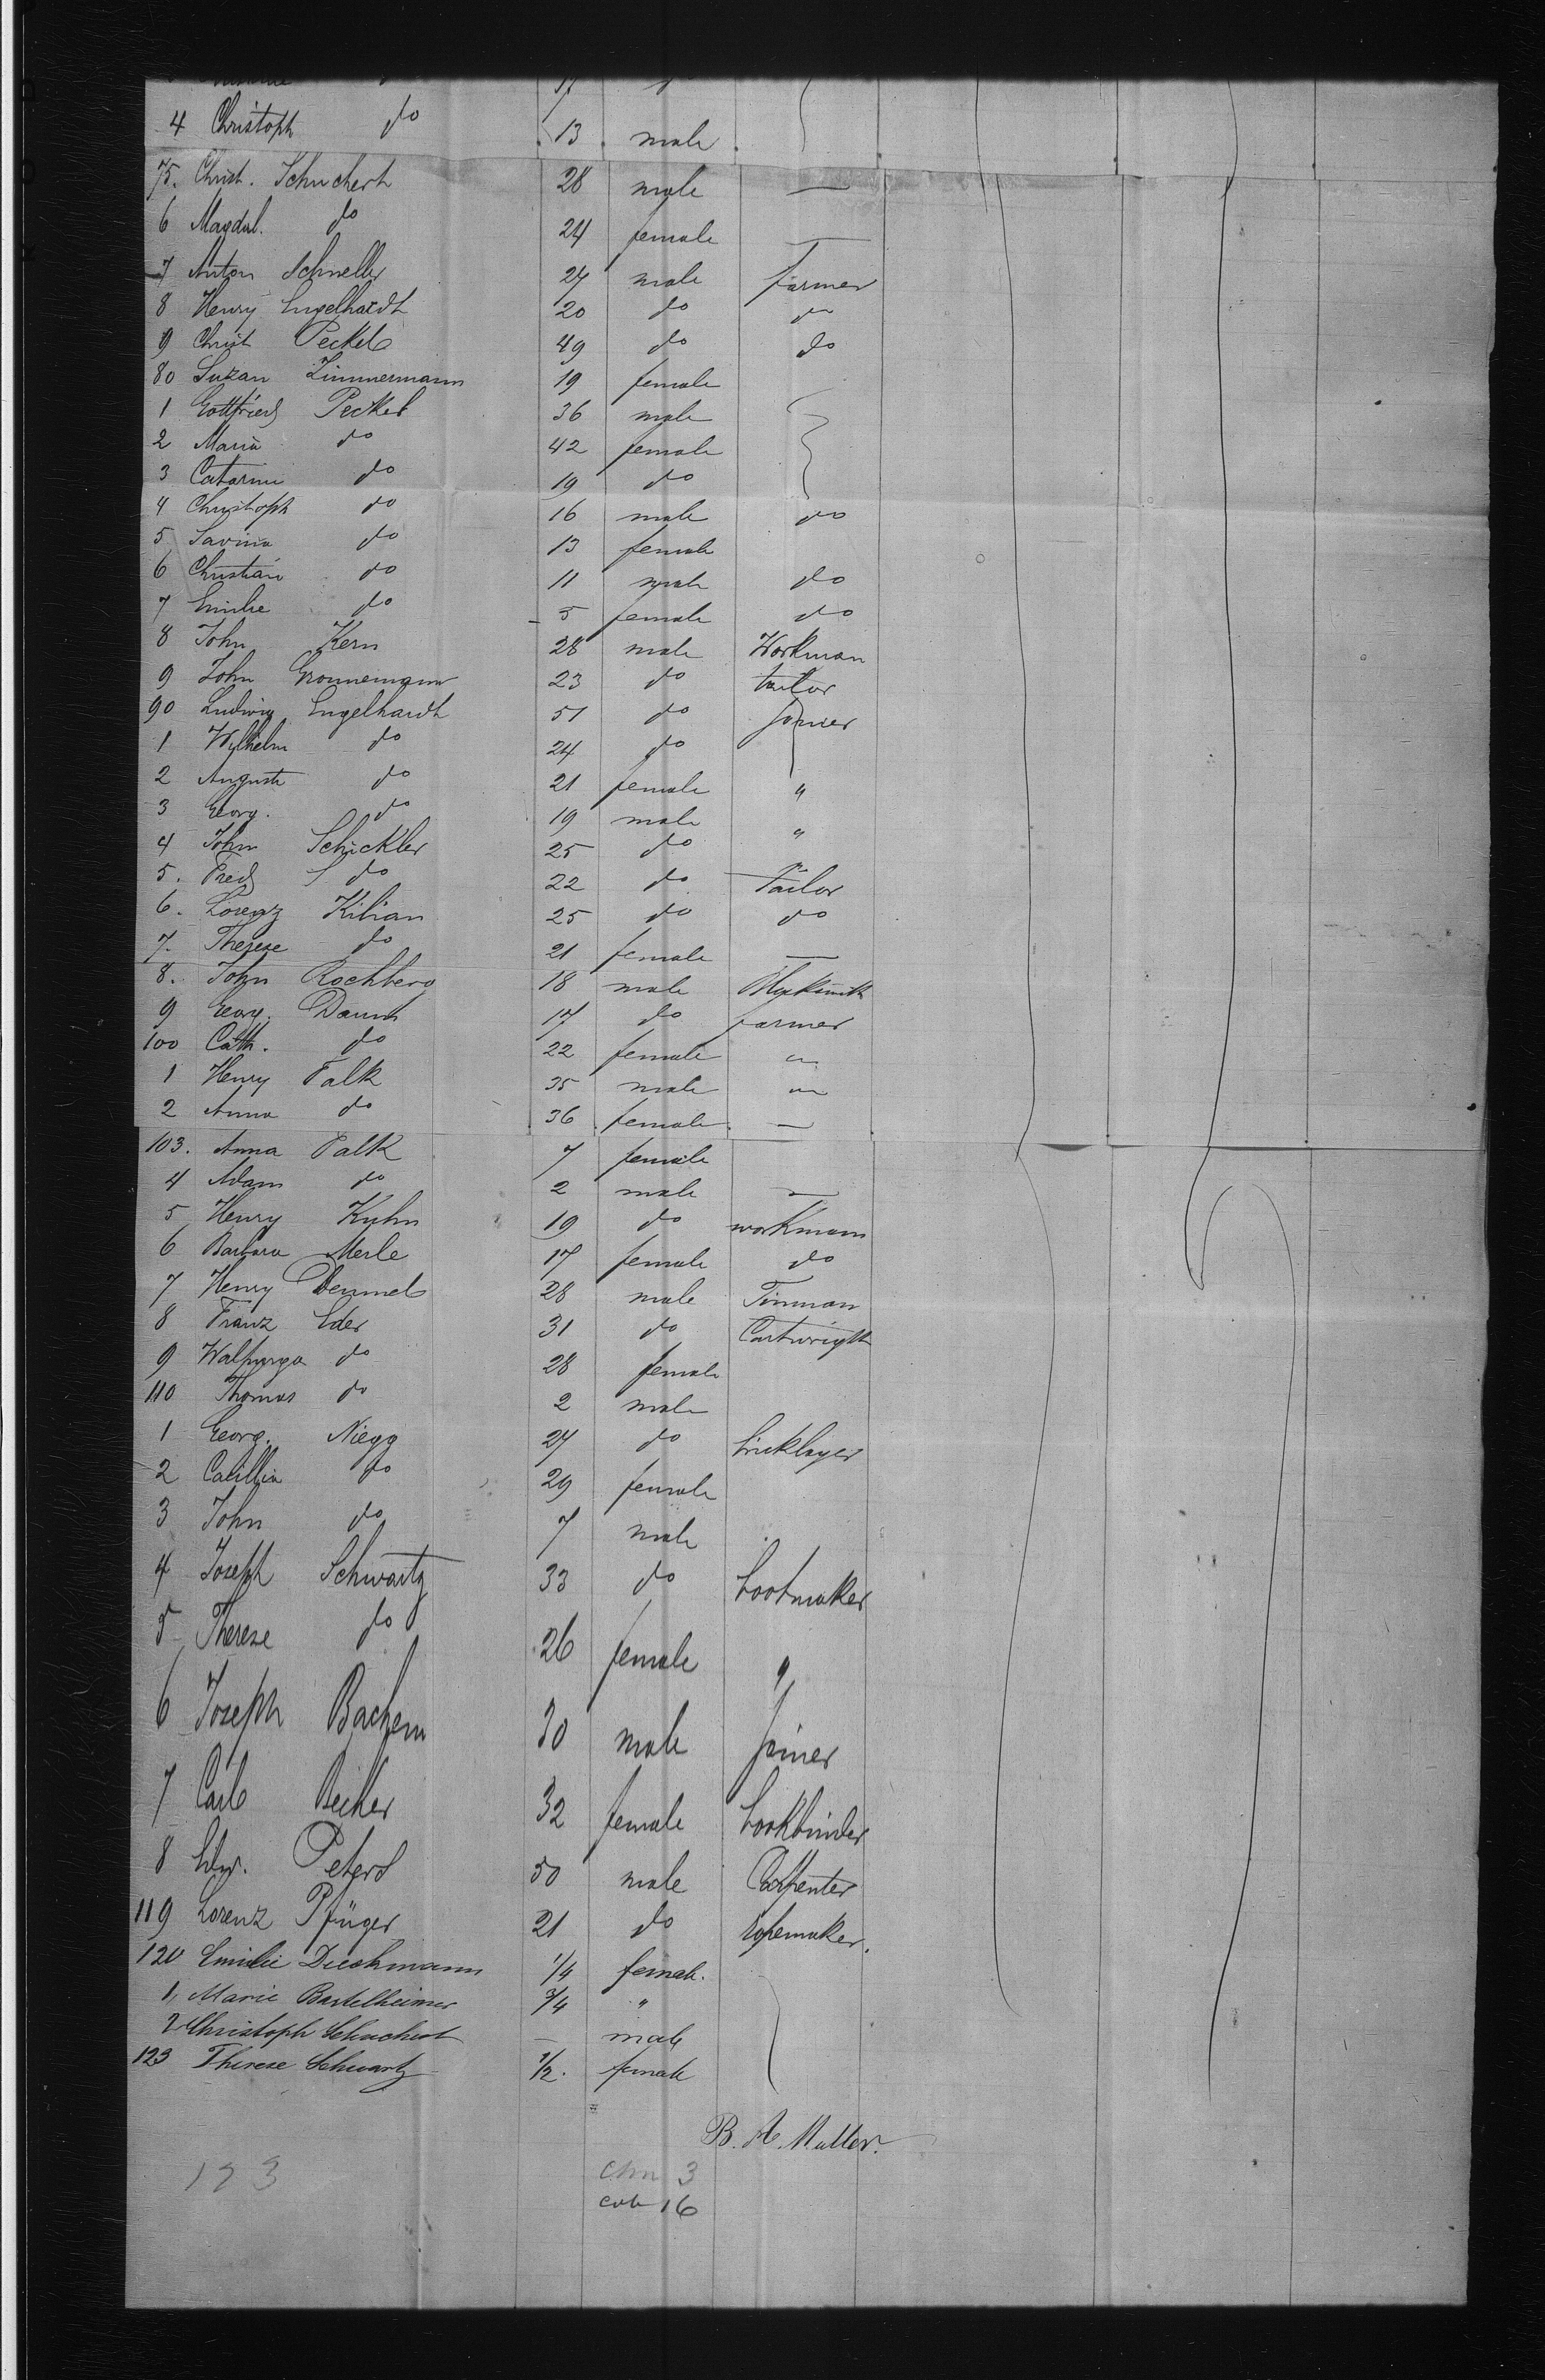 4 Christoph do 13 male
75. Christ. Schuchert 28 male —
6 Magdal. do 24 female —
7 Anton Schneller 27 male farmer
8 Henry Engelhardt 20 do do
9 Christ Peckel 49 do do
80 Suzan Zimmermann 19 female
1 Gottfried Peckel 36 male
2 Maria do 42 female
3 Catarine do 19 do
4 Christoph do 16 male do
5 Savina do 13 female
6 Christian do 11 male do
7 Emilie do 5 female do
8 John Kern 28 male Workman
9 John Gronnemann 23 do tailor
90 Ludwig Engelhardt 51 do joiner
1 Wilhelm do 24 do
2 Auguste do 21 female "
3 Georg. do 19 male "
4 John Schickler 25 do "
5. Fred do 22 do Tailor
6. Lorenz Kilian 25 do do
7. Therese do 21 female —
8. John Rochberg 18 male
9 Georg. Daum 17 do farmer
100 Cath. do 22 female "
1 Henry Falk 35 male "
2 Anna do 36 female —
103. Anna Falk 7 female
4 Adam do 2 male —
5 Henry Kuhn 19 do workmann
6 Barbara Merle 17 female do
7 Henry Demmel 28 male Tinman
8 Franz Eder 31 do Cartwrigth
9 Walpurga do 28 female
110 Thomas do 2 male
1 Georg. Niegg 27 do bricklayer
2 do 29 female
3 John do 7 male
4 Joseph Schwartz 33 do bootmaker
5 Therese do 26 female "
6 Joseph Bachem 30 male joiner
7 Carl Becker 32 female bookbinder
8 Edw. Peters 50 male Carpenter
119 Lorenz Pfüger 21 do ropemaker.
120 Emilie Dieckmann 1/4 female.
1, Marie Bartelheimer 3/4 "
2 Christoph Schuchert — male
123 Therese Schwartz 1/2. female
B. A. Muller.
123
chn 3
cob 16